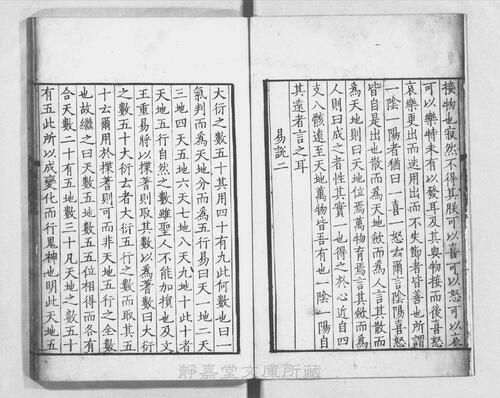 接物也寂然不得其朕可以喜可以怒可以哀
可以樂特未有以發耳及其與物接而後喜怒
哀樂更出而迭用出而不失節者皆善也所謂
一陰一陽者猶曰一喜一怒云爾言陰陽喜怒
皆自是出也散而為天地斂而為人言其散而
為天地則曰天地位焉萬物育焉言其斂而為
人則曰成之者性其實一也得之於心近自四
支八骸遠至天地萬物皆吾有也一陰一陽自
其遠者言之耳
易說二
大衍之數五十其用四十有九此何數也曰一
氣判而為天地分而為五行易曰天一地二天
三地四天五地六天七地八天九地十此十者
天地五行自然之數雖聖人不能加損也及文
王重易將以揲蓍則取其數以為蓍數曰大衍
之數五十大衍云者大衍五行之數而取其五
十云爾用於揲蓍則可而非天地五行之全數
也故繼之曰天數五地數五五位相得而各有
合天數二十有五地數三十凡天地之數五十
有五此所以成變化而行鬼神也明此天地五
静嘉堂文庫所藏